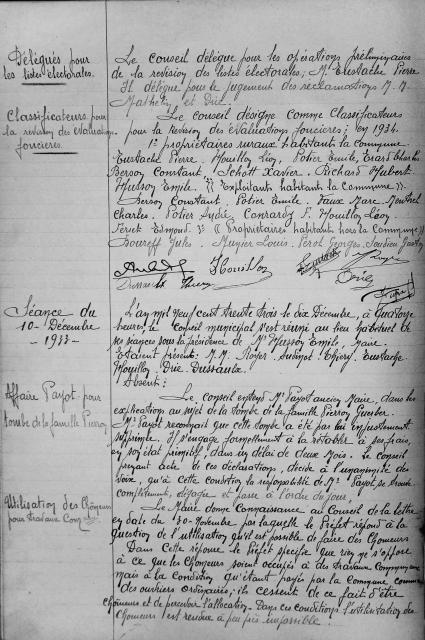 Délégués pour
les listes électorales.
Le conseil délègue pour les opérations préliminaires
de la revision des listes électorales; Mr. Eustache Pierre
Il délègue pour le jugement des réclamations M.M.
Mathelin et Duc.
Classificateurs pour
la revision des évaluations
foncières.
Le conseil désigne comme Classificateurs
pour la revision des évaluations foncières; en 1934.
1° propriétaires ruraux habitants la commune
Eustache Pierre. Houillon Léon, Potier Emile, Erard Charles
Berson Constant. Schott Xavier. Richard Hubert.
Husson Emile. 2° Exploitants habitants la Commune
Berson Constant. Potier Emile. Vaux Marc.
Charles. Potier André. Conrard F. Houillon Léon.
Péret Edmond. 3° Propriétaires habitants hors la Commune
Jules. Munier Louis. Pérot Georges.
Houillon
Dussaulx Thiery
Séance du
10 Décembre
1933
L'an mil neuf cent trente trois le dix Décembre, à quatorze
heures, le Conseil municipal s'est réuni au lieu habituel de
ses séances sous la présidence de Mr Husson Emile, Maire.
Etaient présents: M.M. Royer, Thiery, Eustache
Houillon, Duc. Dussaulx.
Absent:
Affaire Payot pour
tombe de la famille Pierron
Le Conseil entend Mr Payot ancien Maire, dans les
explications au sujet de la tombe de la famille Pierron
Mr Payot reconnait que cette tombe a été par lui injustement
supprimée. Il s'engage formellement à la rétablir à ses frais,
en son état primitif, dans un délai de deux mois. Le Conseil
prenant acte de ces déclarations, décide à l'unanimité des
voix, qu'à cette condition la responsabilité de Mr Payot, se trouve
complètement dégagée et passe à l'ordre du jour.
Utilisation des Chômeurs
pour travaux
Le Maire donne Connaissance au Conseil de la lettre
en date du 30 Novembre par laquelle le Préfet répond à la
question de l'utilisation qu'il est possible de faire des Chômeurs
Dans cette réponse le Préfet specifie que rien ne s'oppose
à ce que les Chômeurs soient occupés à des travaux Communaux
mais à la Condition qu'étant payés par la Commune comme
des ouvriers ordinaires, ils cessent de ce fait d'être
chômeurs et de percevoir l'allocation. Dans ces conditions l'utilisation des
Chômeurs est rendue à peu près impossible.